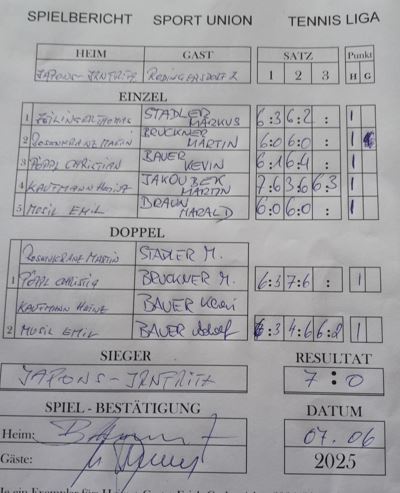 SPIELBERICHT SPORT UNION TENNIS LIGA
HEIM GAST SATZ Punkt
1 2 3 H G
JAPONS-IRNFRITZ RODINGERSDORF 2
EINZEL
1 ZEILINGER THOMAS STADLER MARKUS 6:3 6:2 : 1
2 ROSENKRANZ MARTIN BRUCKNER MARTIN 6:0 6:0 : 1
3 PÖPPL CHRISTIAN BAUER KEVIN 6:1 6:4 : 1
4 KAUFMANN HEINZ JAKOUBEK MARTIN 7:6 3:6 6:3 1
5 MUSIL EMIL BRAUN HARALD 6:0 6:0 : 1
DOPPEL
ROSENKRANZ MARTIN STADLER M.
1 PÖPPL CHRISTIA BRUCKNER M. 6:3 7:6 : 1
KAUFMANN HEINZ BAUER Kevin
2 MUSIL EMIL BAUER Adolf 6:3 4:6 6:2 1
SIEGER RESULTAT
JAPONS-IRNFRITZ 7:0
SPIEL - BESTÄTIGUNG DATUM
Heim: 07.06
Gäste: 2025